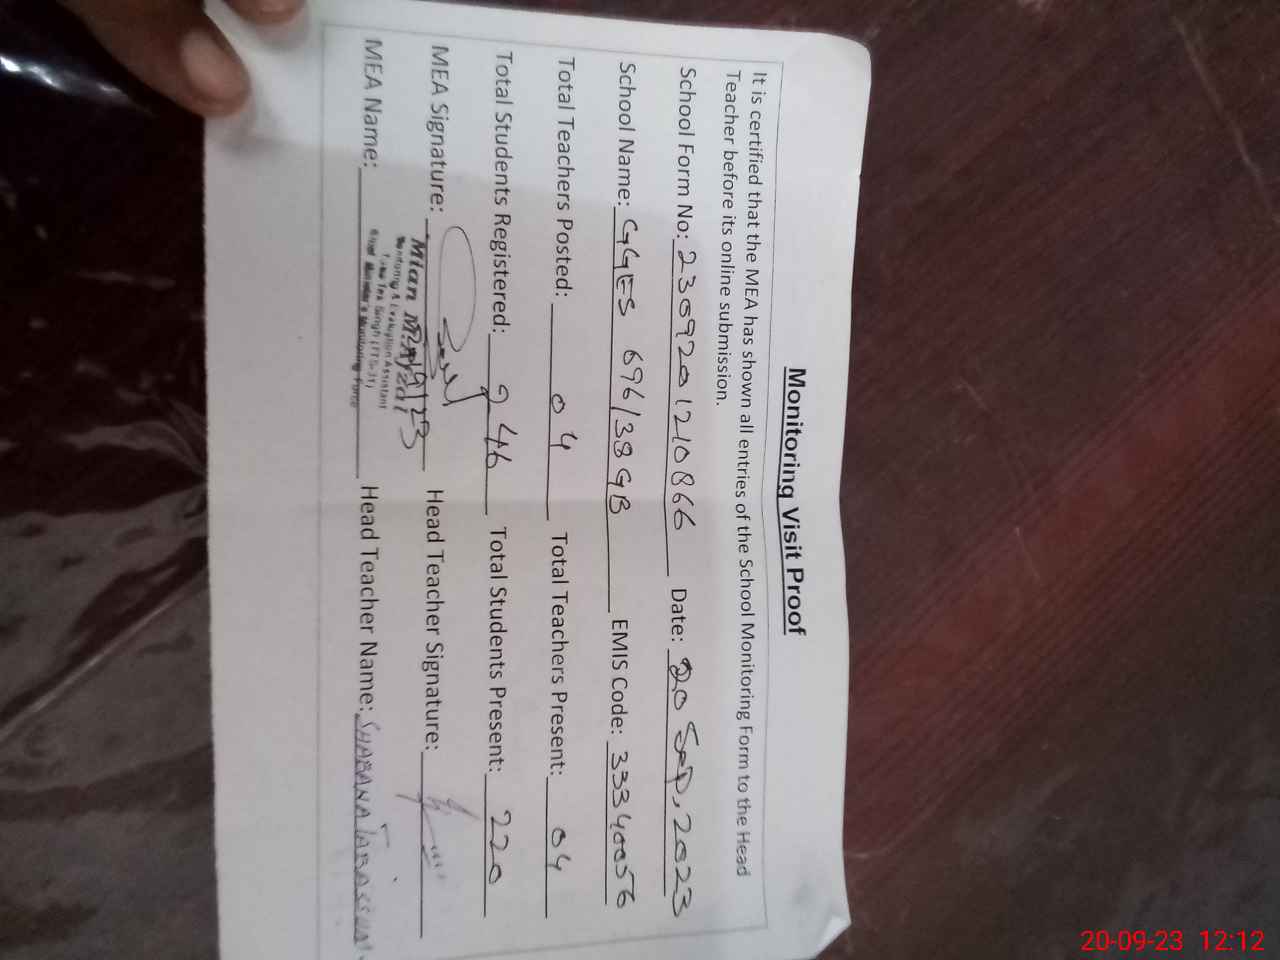 Monitoring Visit Proof
It is certified that the MEA has shown all entries of the School Monitoring Form to the Head
Teacher before its online submission.
School Form No: 2309201210866 Date: 20 Sep, 2023
School Name: GGES 696/38 GB EMIS Code: 33340056
Total Teachers Posted: 04 Total Teachers Present: 04
Total Students Registered: 246 Total Students Present: 220
MEA Signature: Head Teacher Signature:
Mian
Monitoring & Evaluation Assistant
Toba Tek Singh (TTS-31)
Chief Minister's Monitoring Force
MEA Name: Head Teacher Name: SHABANA TABASSUM
20-09-23 12:12